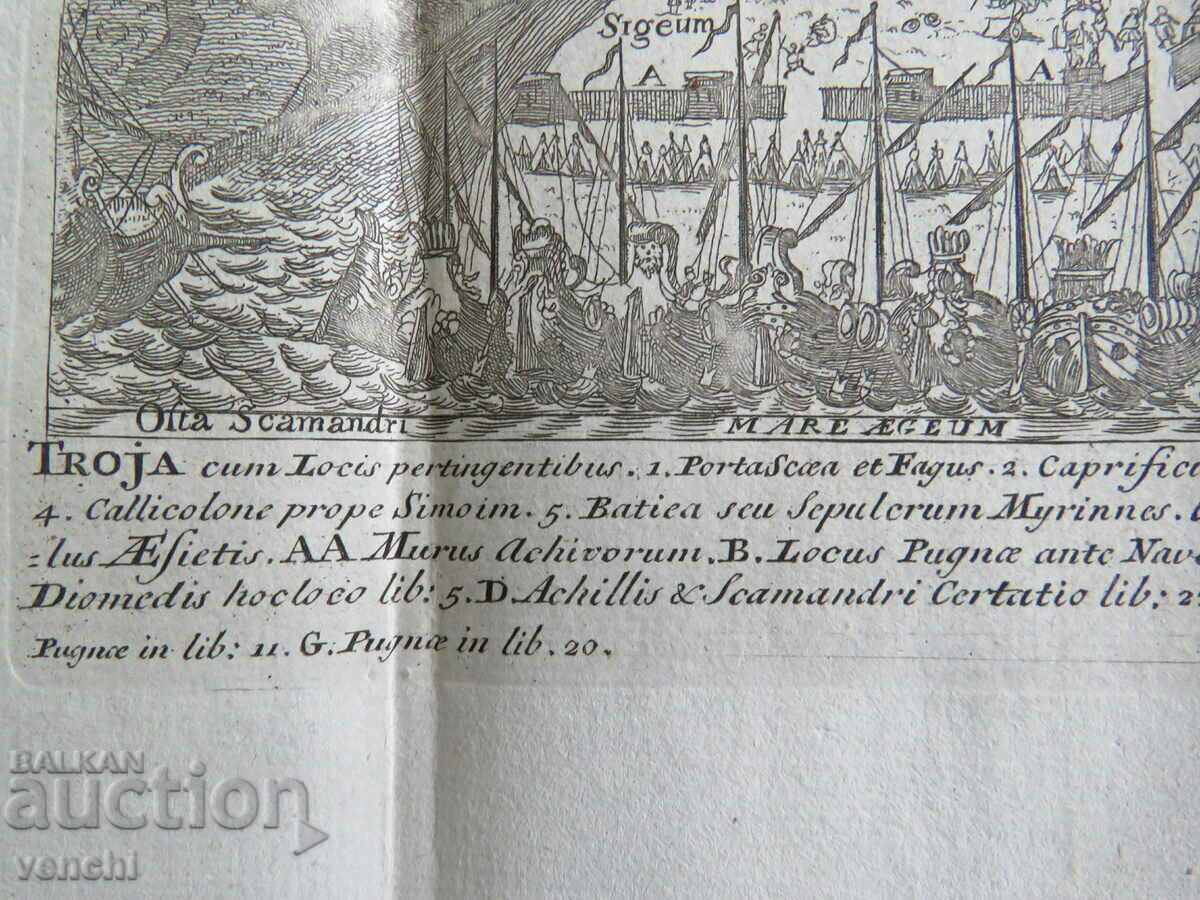 Sigeum
A A
Osta Scamandri MARE ÆGEUM
TROJA cum Locis pertingentibus. 1. Porta Scæa et Fagus. 2. Caprific
4. Callicolone prope Simoim. 5. Batiea seu Sepulcrum Myrinnes.
=lus Æsietis. AA Murus Achivorum. B. Locus Pugnæ ante Nav
Diomedis hoc loco lib: 5. D. Achillis & Scamandri Certatio lib: 2
Pugnæ in lib: 11. G. Pugnæ in lib. 20.
BALKAN
auction
venchi